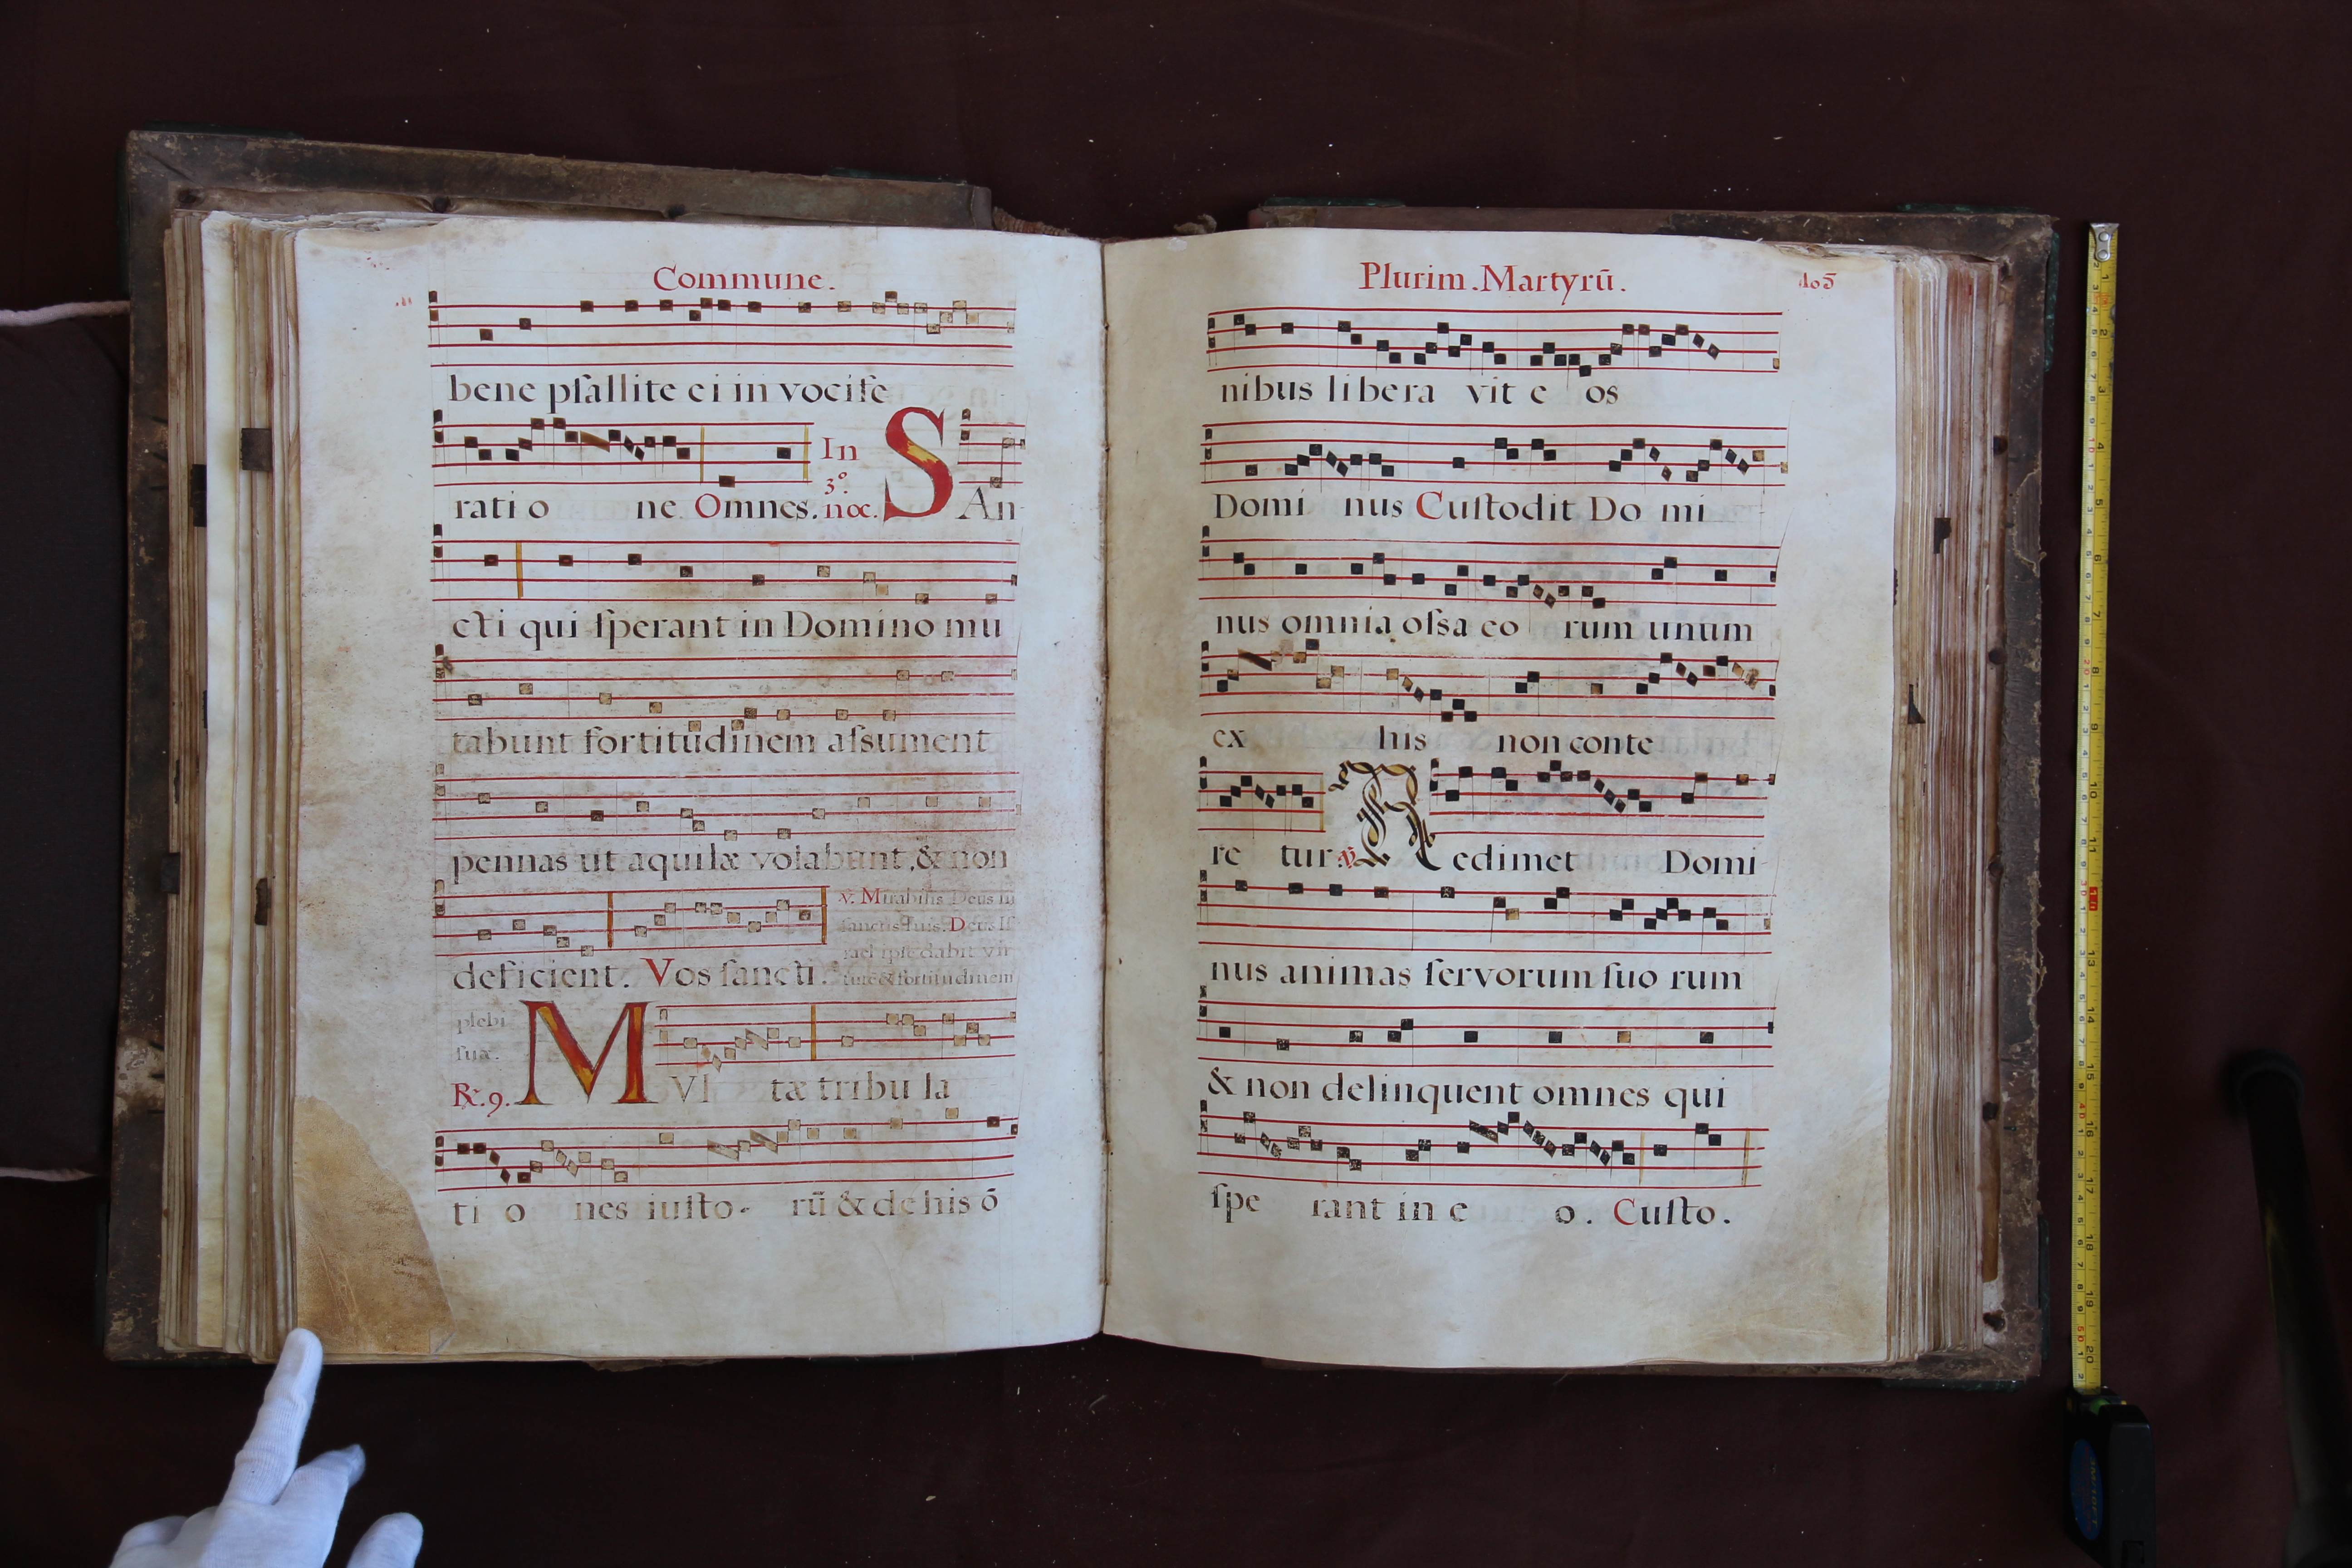 Commune.
bene pſallite ei in vociſe
rati o ne. Omnes. In 3º. noc. SAn
cti qui ſperant in Domino mu
tabunt fortitudinem aſsument
pennas ut aquilæ volabunt, & non
deficient. Vos ſancti.
℣. Mirabilis Deus in
ſanctis ſuis. Deus Iſ
rael ipſe dabit vir
tutē & fortitudinem
plebi
ſuæ.
℟. 9. MVl tæ tribu la
ti o nes iuſto- rū & de his ō
Plurim. Martyrū.
nibus libera vit e os
Domi nus Cuſtodit Do mi
nus omnia oſsa eo rum unum
ex his non conte
re tur ℣. Redimet Domi-
nus animas ſervorum ſuo rum
& non delinquent omnes qui
ſpe rant in e o. Cuſto.